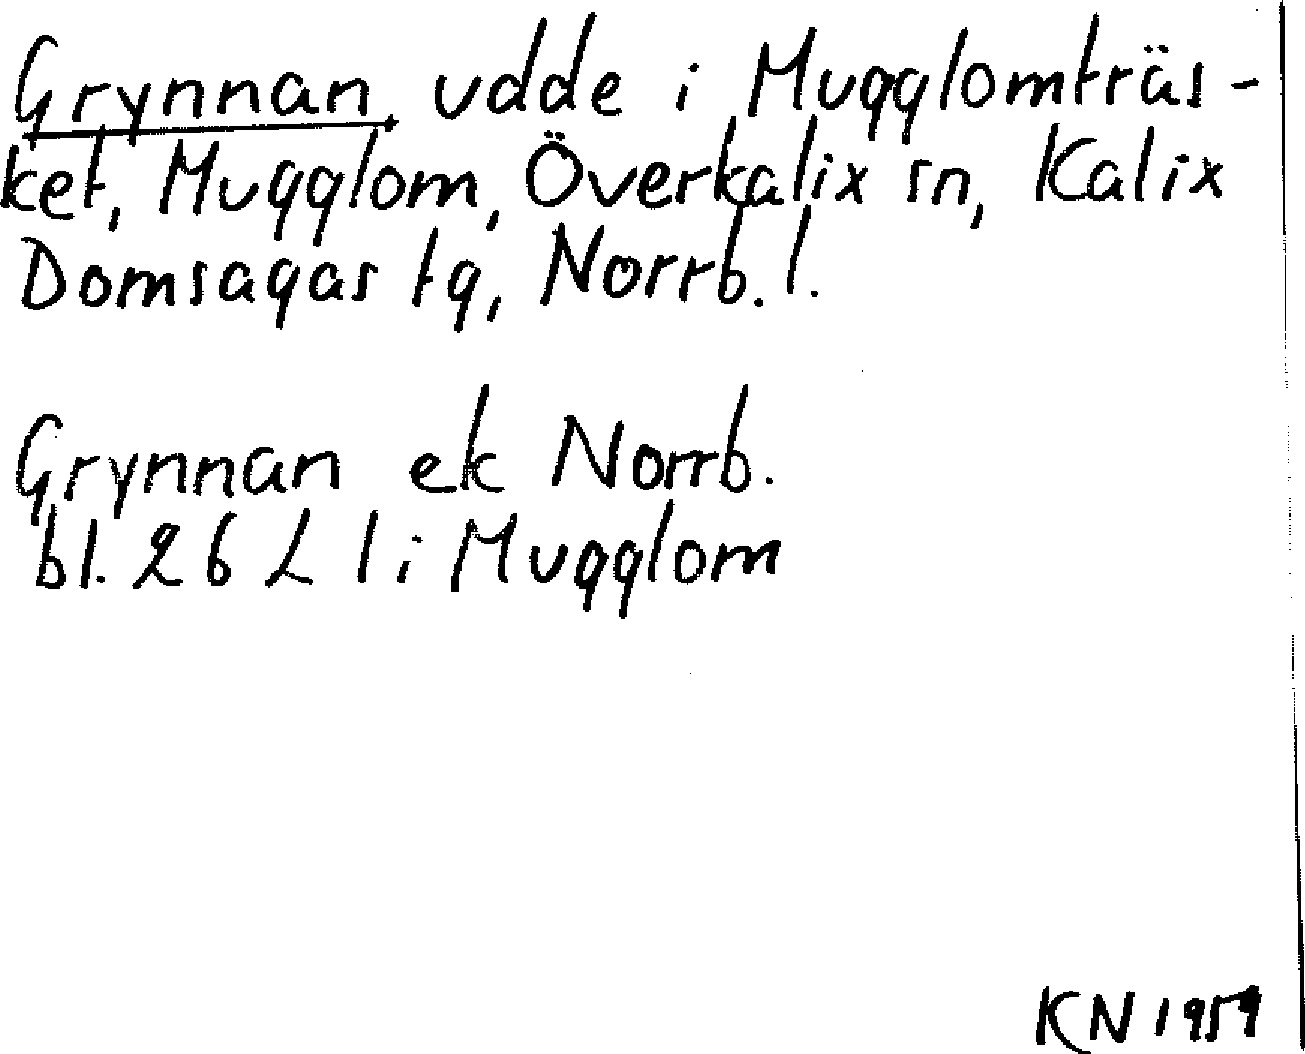 Grynnan, udde i Mugglomträs-
ket, Mugglom, Överkalix sn, Kalix
Domsagas tg, Norrb. l.
Grynnan ek Norrb.
bl. 26 L l i Mugglom
KN 1959